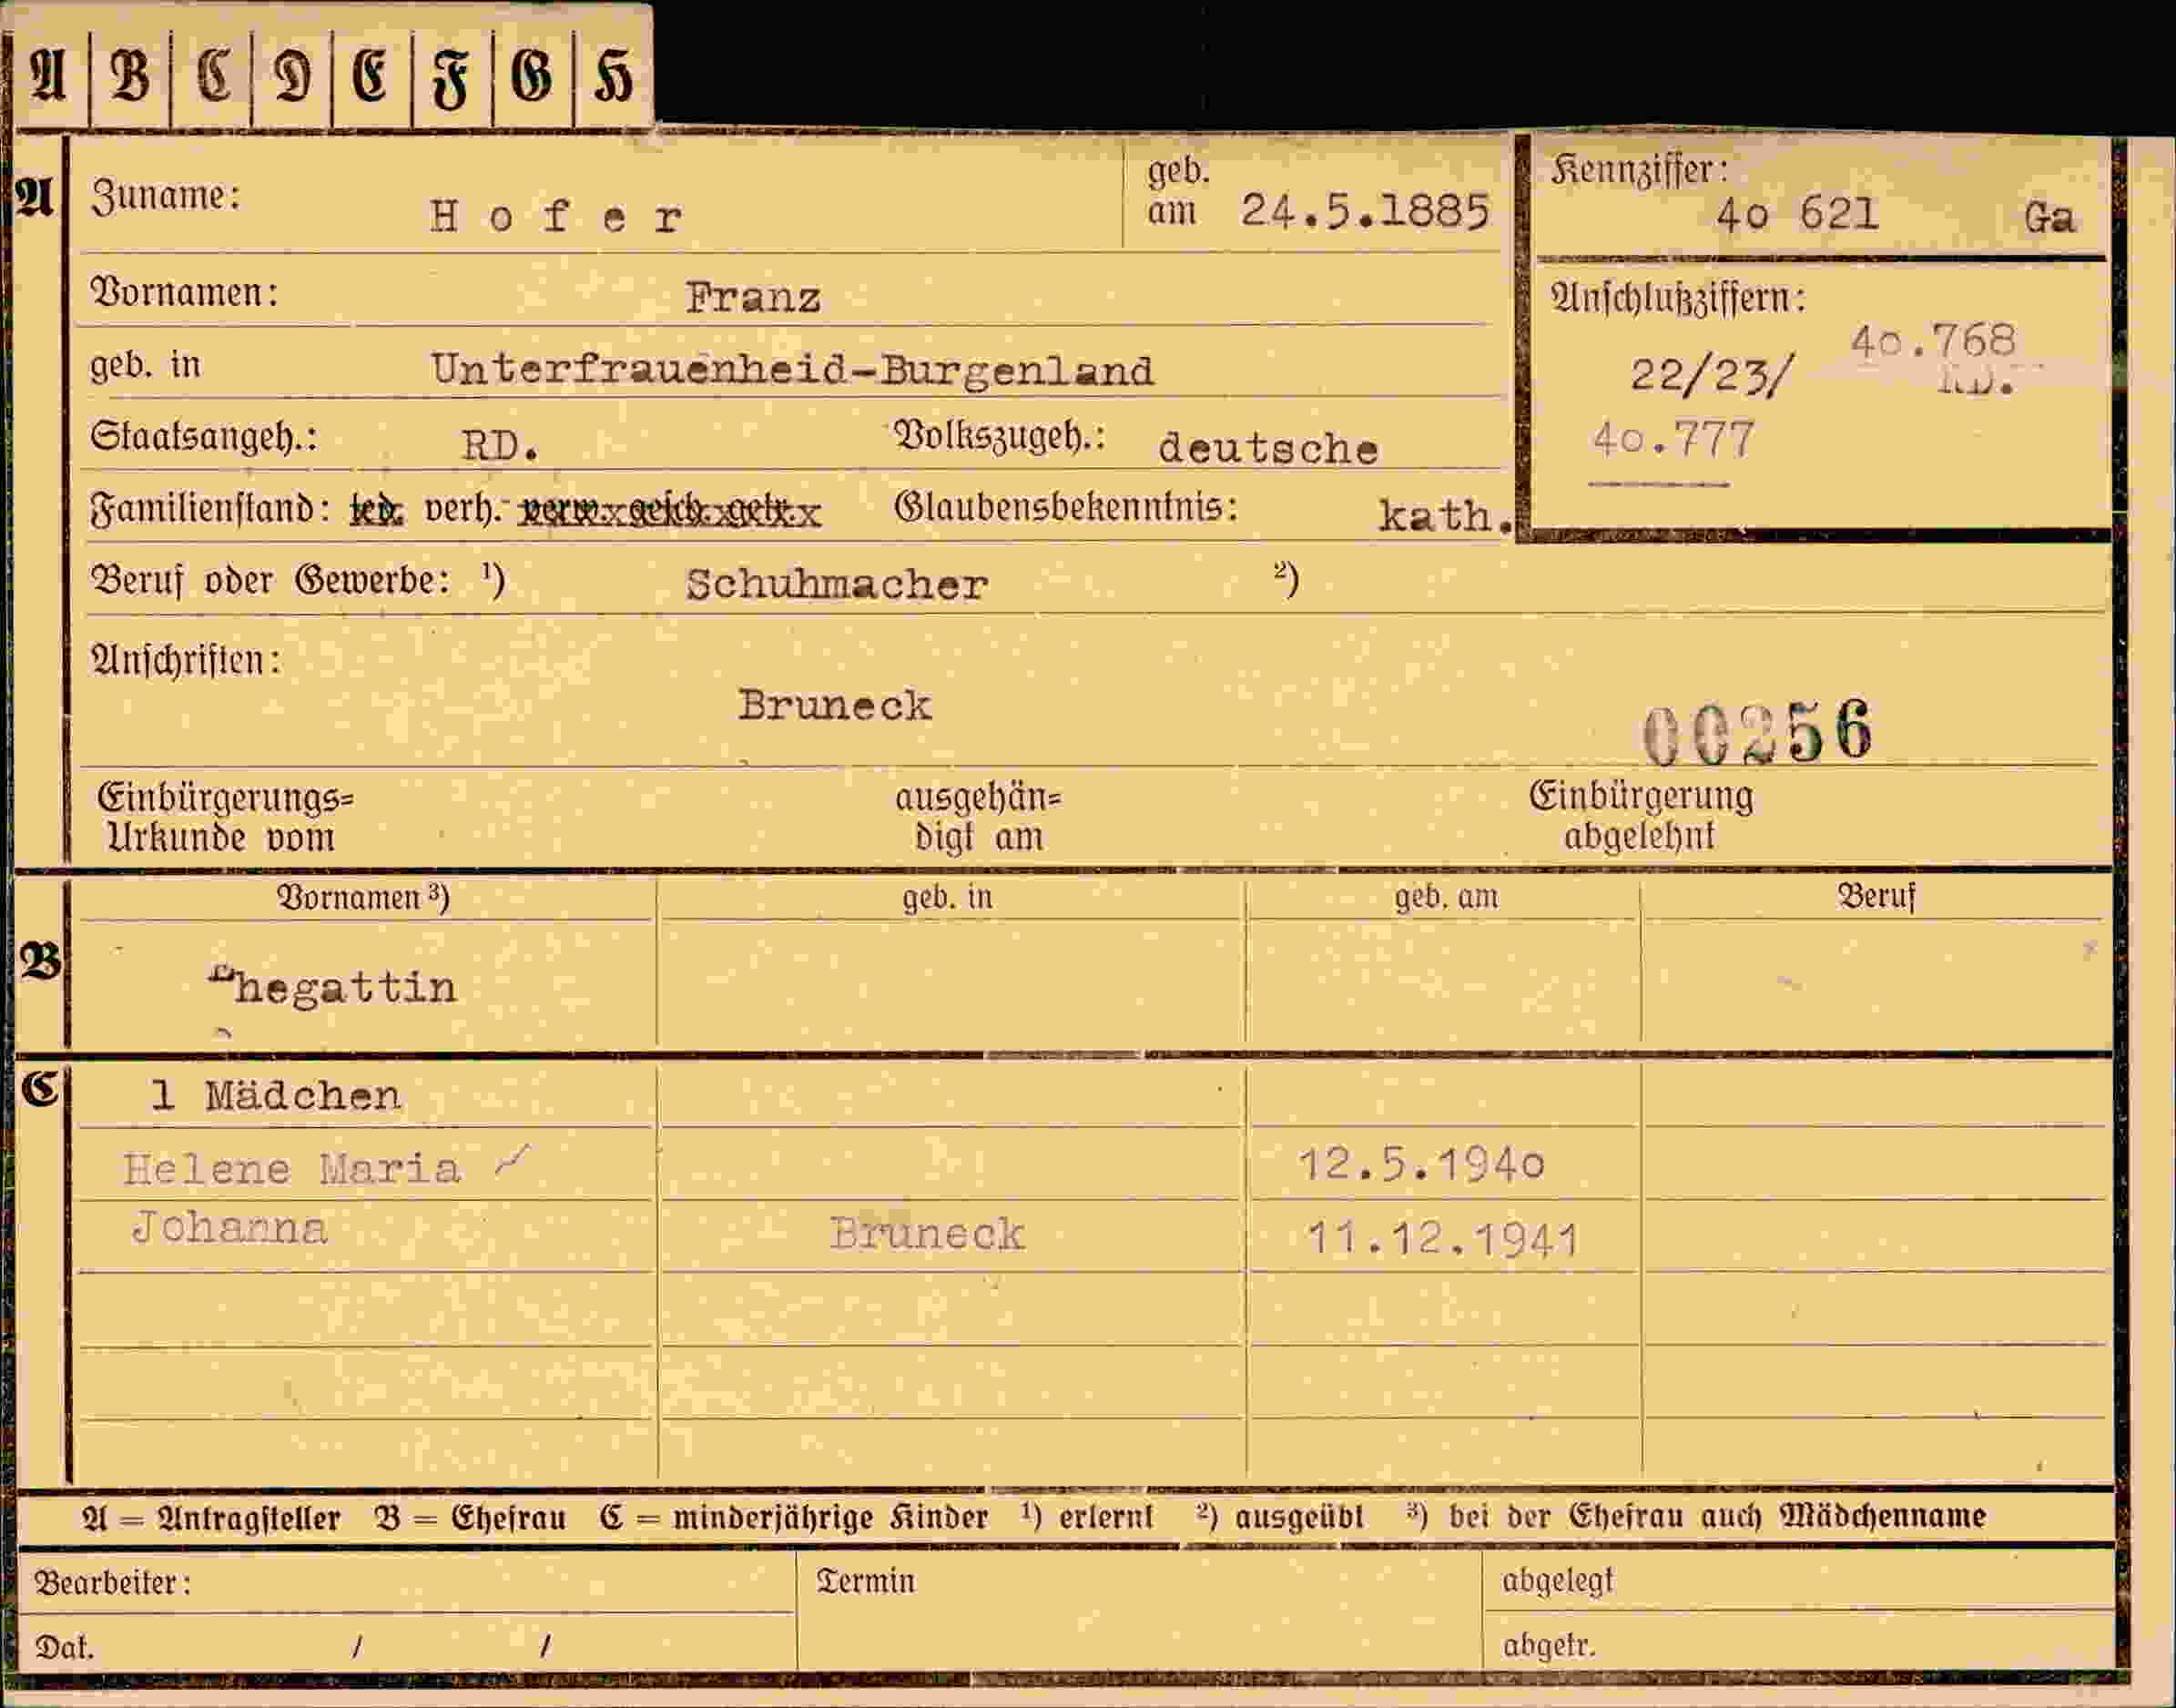 A B C D E F G H
A Zuname: Hofer geb. am 24.5.1885 Kennziffer: 4o 621 Ga
Vornamen: Franz Anschlußziffern:
4o.768
geb. in Unterfrauenheid-Burgenland 22/23/ RD.
Staatsangeh.: RD. Volkszugeh.: deutsche 4o.777
Familienstand: led. verh. verw. gesch. getr. Glaubensbekenntnis: kath.
Beruf oder Gewerbe: ¹) Schuhmacher ²)
Anschriften:
Bruneck
00256
Einbürgerungs= ausgehän= Einbürgerung
Urkunde vom digt am abgelehnt
Vornamen ³) geb. in geb. am Beruf
B Ehegattin
C 1 Mädchen
Helene Maria 12.5.194o
Johanna Bruneck 11.12.1941
A = Antragsteller B = Ehefrau C = minderjährige Kinder ¹) erlernt ²) ausgeübt ³) bei der Ehefrau auch Mädchenname
Bearbeiter: Termin abgelegt
Dat. / / abgetr.